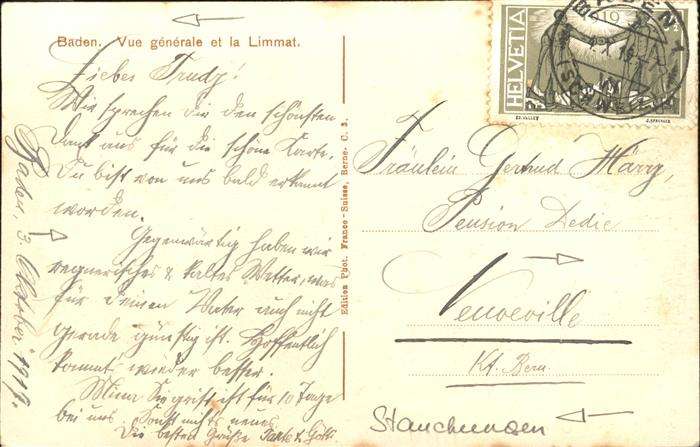 Baden. Vue générale et la Limmat.
Liebes Trudy!
Wir sprechen dir den schönsten
Dank aus für die schöne Karte.
Du bist von uns bald erkannt
worden.
Gegenwärtig haben wir
regnerisches & kaltes Wetter, was
für Deinen Vater auch nicht
gerade günstig ist. Hoffentlich
kommt wieder besser.
ist für 10 Tage
bei uns. Sonst nichts neues
Die besten Grüße
Baden, 3. Oktober 1919.
Edition Phot. Franco-Suisse, Berne. C. 3.
HELVETIA
BADEN 1
Fräulein Gertrud März,
Pension Dedie
Neuveville
Kt. Bern.
Stauchungen